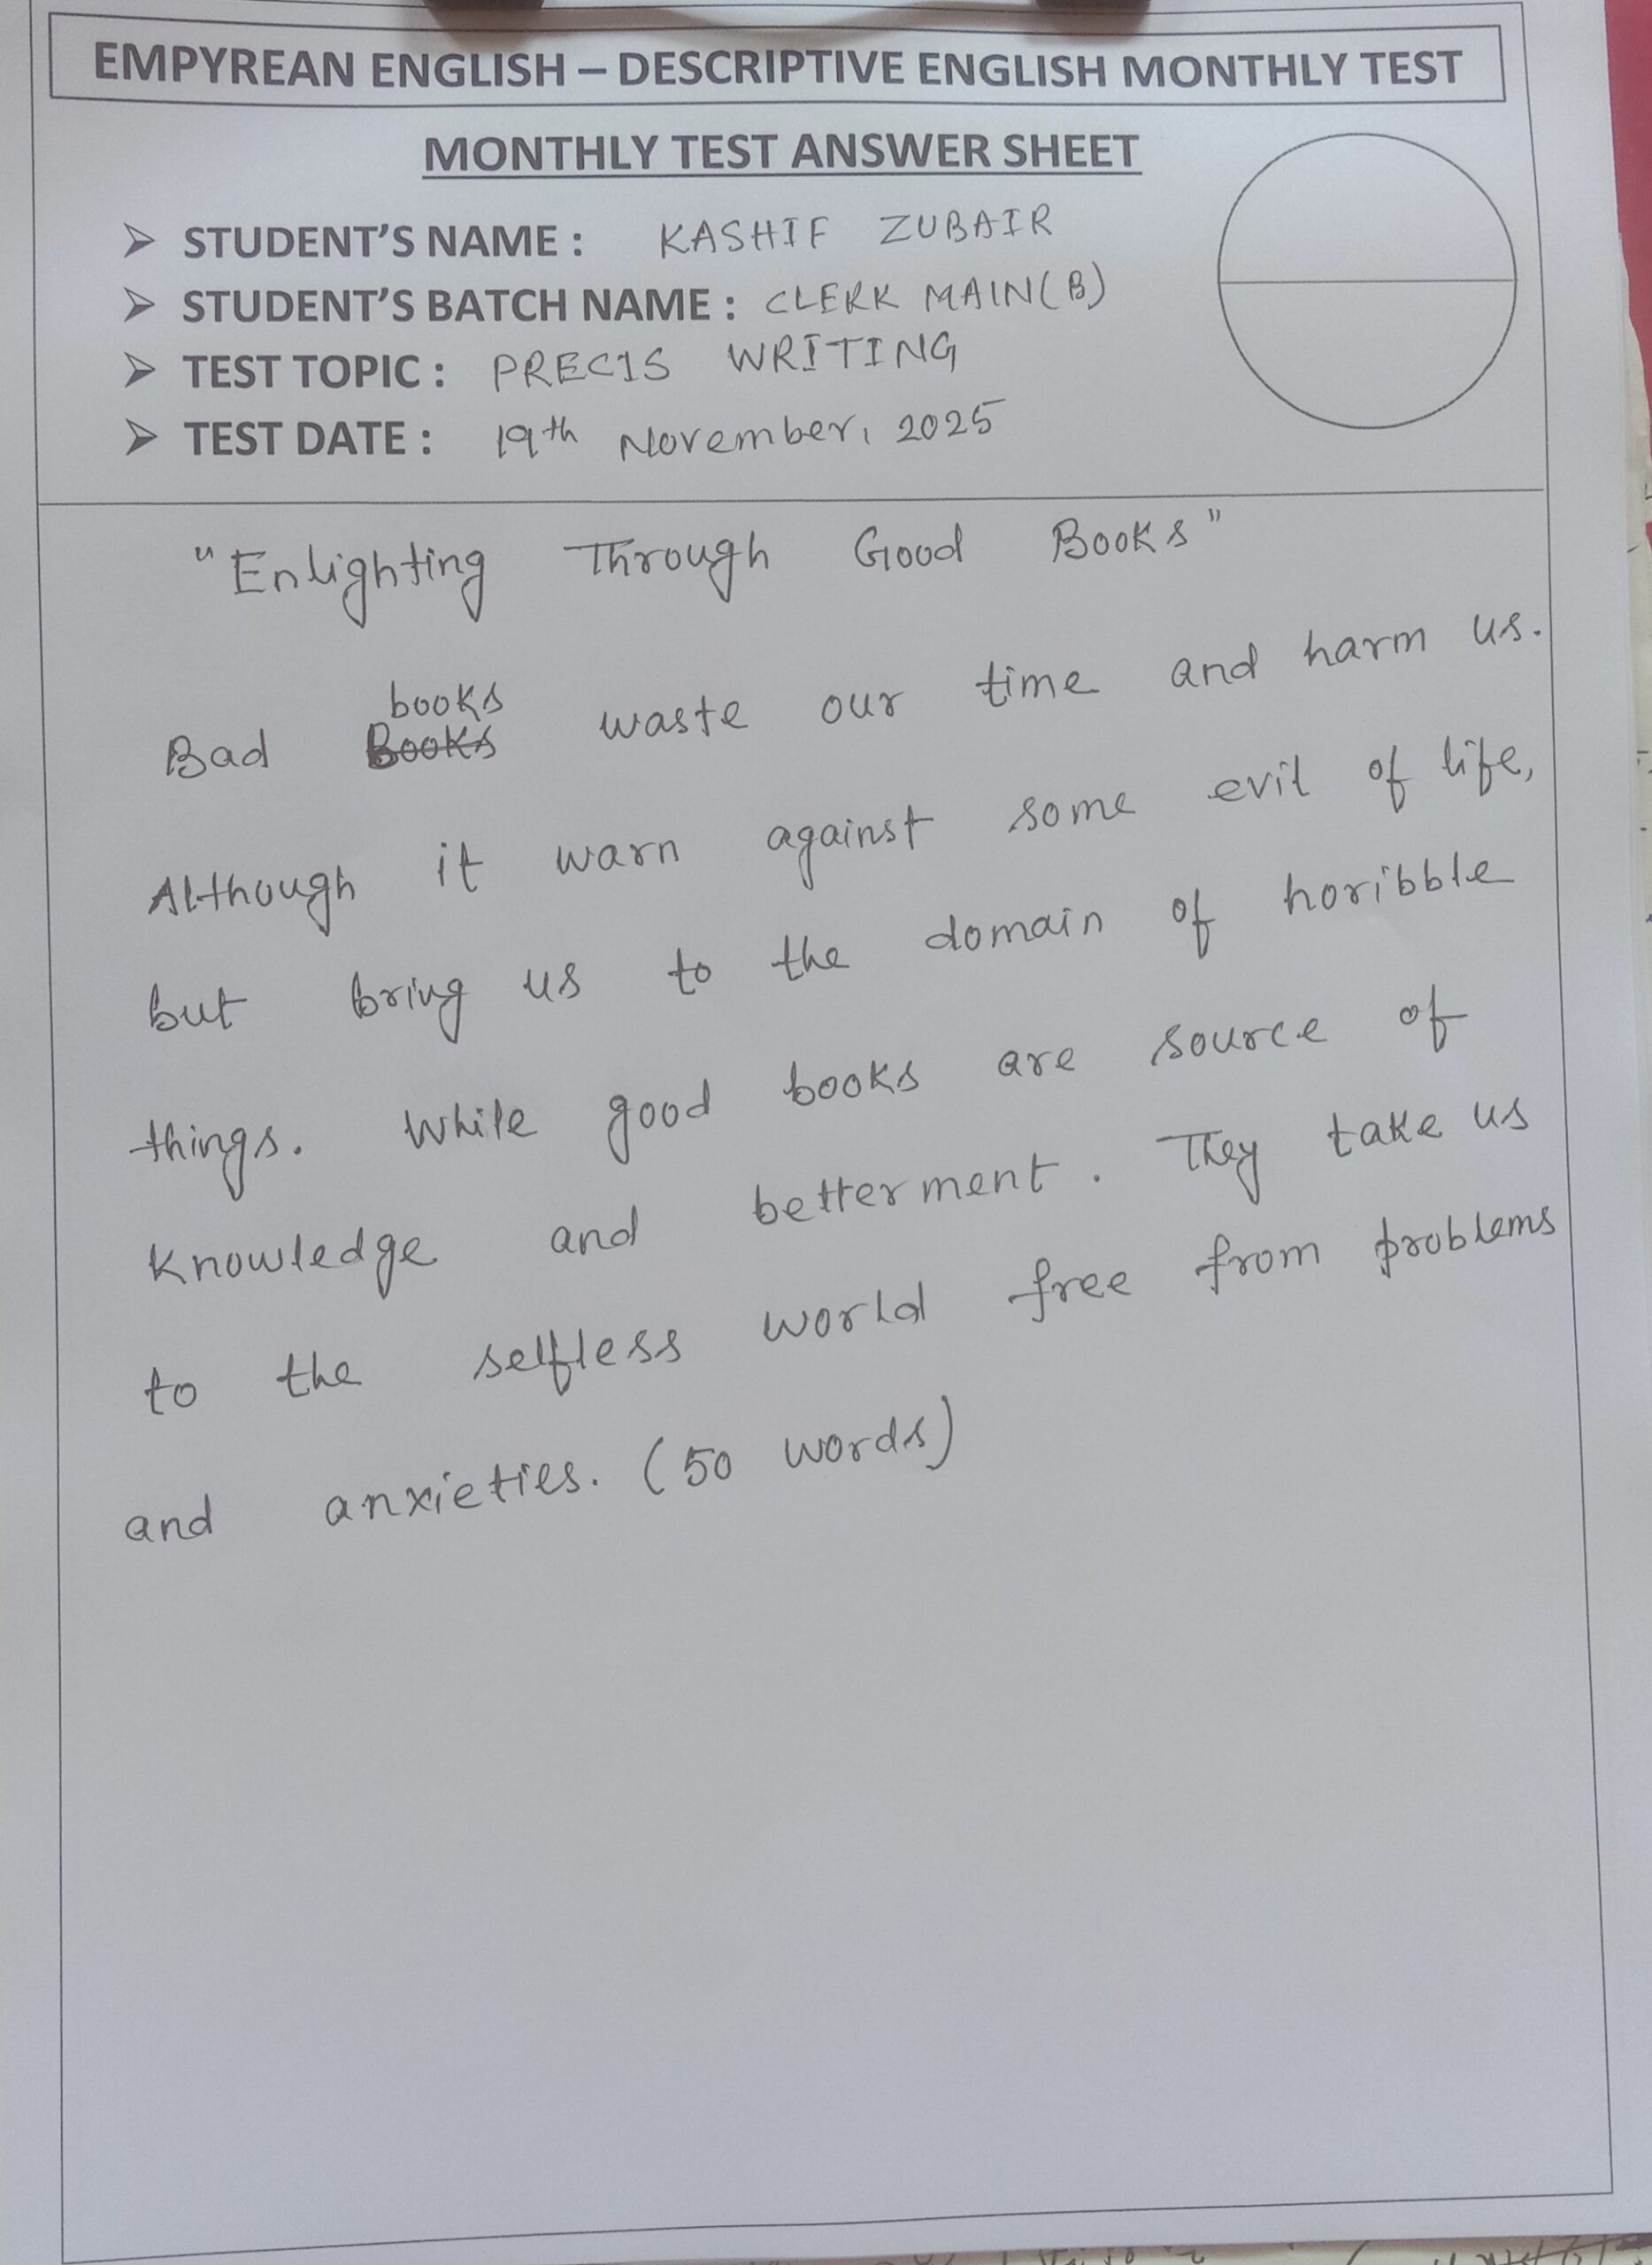 EMPYREAN ENGLISH – DESCRIPTIVE ENGLISH MONTHLY TEST
MONTHLY TEST ANSWER SHEET
➢ STUDENT'S NAME : KASHIF ZUBAIR
➢ STUDENT'S BATCH NAME : CLERK MAIN(B)
➢ TEST TOPIC : PRECIS WRITING
➢ TEST DATE : 19th November, 2025
"Enlighting Through Good Books"
Bad Books books waste our time and harm us.
Although it warn against some evil of life,
but bring us to the domain of horibble
things. While good books are source of
knowledge and betterment. They take us
to the selfless world free from problems
and anxieties. (50 words)